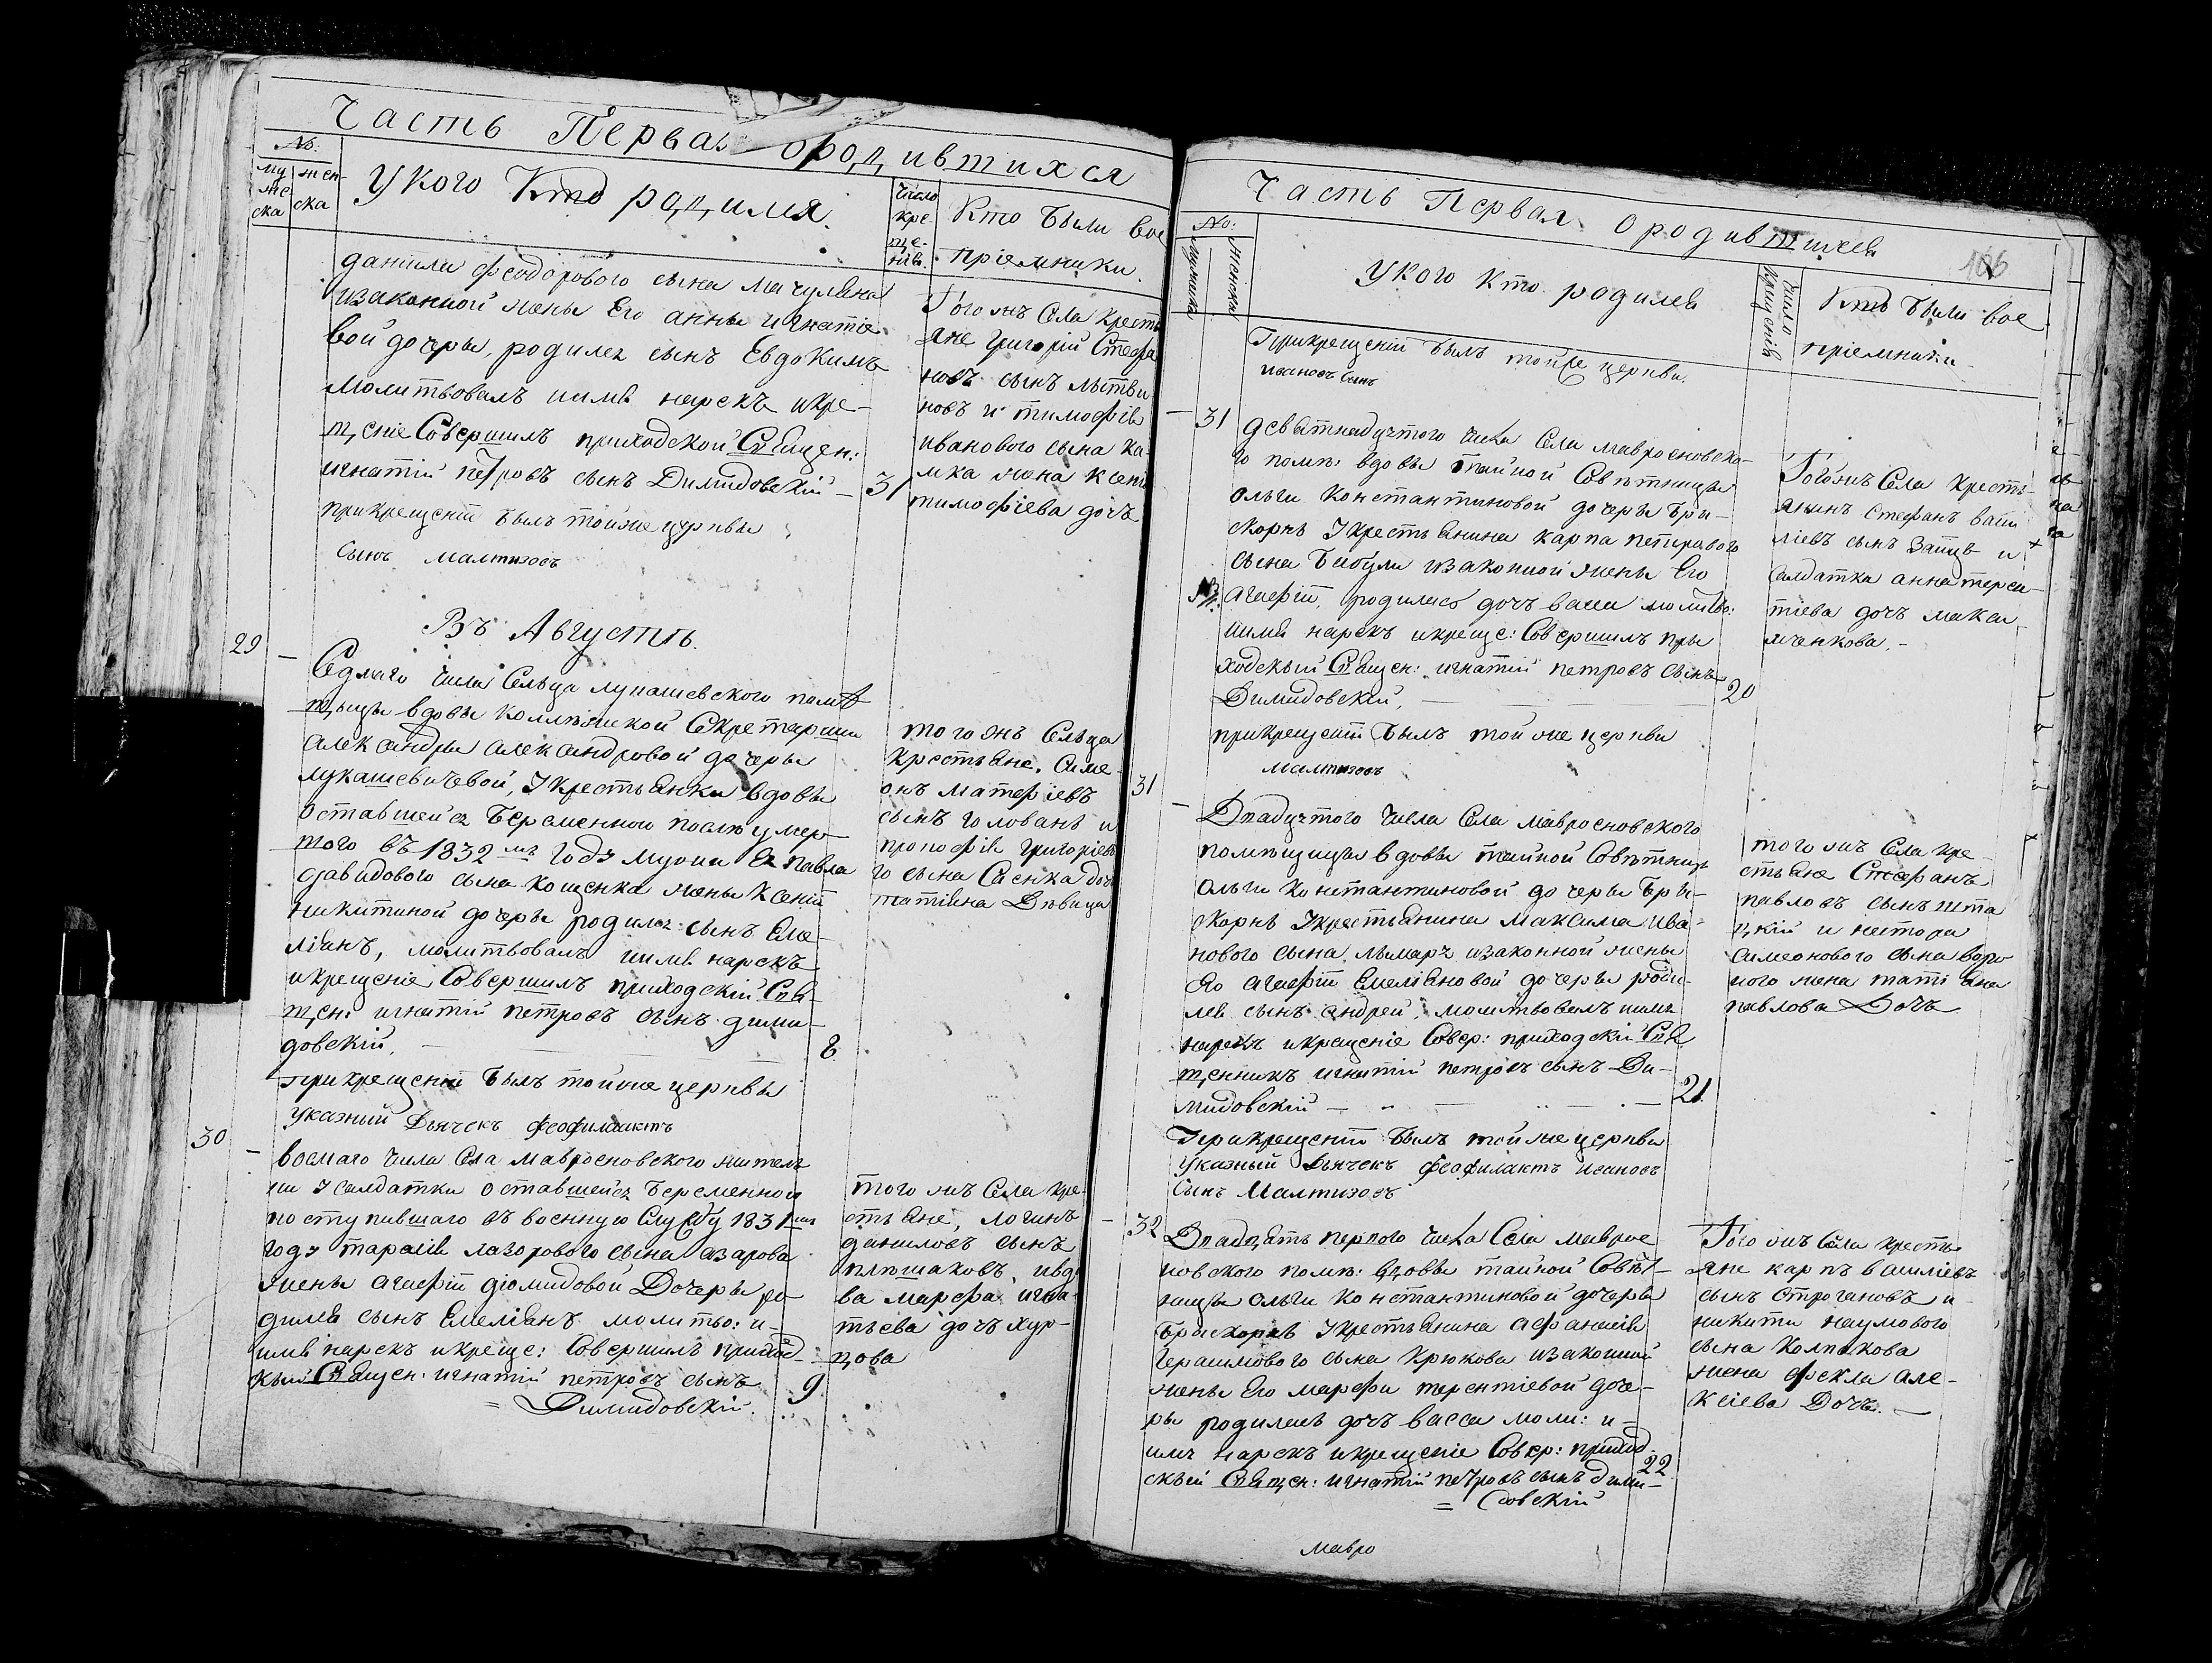 Часть Первая ородившихся
№:
му
же
ска
жен
ска
Укого Кто родился.
Число
кре
ще-
нія.
Кто были вос
пріемники.
данила феодорового сына мачулина
изаконной жены Его анны игнатіе
вой дочеры, родился сынъ Евдокимъ
молитвовалъ иимя нарекъ икре-
щеніе Совершилъ приходской Священ:
игнатій петровъ сынъ Димидовскій — 31
прикрещеніи былъ тойже церквы
сынъ
Тогожъ Села кресть
яне григорій Стефа
новъ сынъ литви
новъ и тимофія
иванового сына ка
жена ксенія
тимофіева дочъ
Въ Августѣ.
29 —
Седмаго числа Сельца лукашевского помѣ
щицы вдовы коллѣжской Секретарши
александры александровой дочеры
лукашевичевой, Укрестьянки вдовы
оставшейся беременною послѣ умер
шого въ 1832мъ годѣ мужа Ея павла
давидового сына кощенка жены ксеніи
никитиной дочеры родился сынъ Еме
ліянъ, молитвовалъ иимя нарекъ
икрещеніе Совершилъ приходскій Свя
щен: игнатій петровъ сынъ дими
довскій, — 8
прикрещеніи былъ тойже церквы
указный Дьячекъ феофилактъ
тогожъ Сельца
крестьяне, Симе
онъ матфіевъ
сынъ головань и
прокофія григоріево
го сына Саенка доч
татіяна Дѣвица
30 —
восмаго числа Села мавросновского жител
ки Усалдатки оставшейся беременною
поступившаго въ военную Службу 1831го
годѣ тарасія лазорового сына азарова
жены агафіи діомидовой Дочеры ро
дился сынъ Емеліянъ молитво: и-
имя нарекъ икреще: Совершилъ приход
скій Священ: игнатій петровъ сынъ 9
= Димидовскій.
тогожъ Села кре
стьяне, логинъ
даниловъ сынъ
плѣшаковъ, ивдо
ва марфа игна
тьева дочъ хур-
цова
Часть Первая ородившихся
106
No:
Мужеска
Женска
Укого кто родился
Число
Крещенія
Кто были вос
пріемники
Прикрещеніи былъ тойже церкви.
ивановъ сынъ
— 31
девятнадцтого числа Села мавросновско-
го помѣ: вдовы тайной Совѣтницы
ольги константиновой дочеры Бри-
скорнъ Укрестьянина карпа петрового
сына Бибули изаконной жены Его
агафіи, родилась дочъ васса молитво:
иимя нарекъ икреще: Совершилъ при
ходскый Священ: игнатій петровъ сынъ
Димидовскій, — 20
прикрещеніи былъ тойже церквы
Тогожъ Села кресть-
янинъ Стефанъ васи
ліевъ сынъ Заицъ и
Салдатка анна терен
тіева дочъ макси
менкова. -
31 —
Двадцтого числа Села мавросновского
помѣщицы вдовы тайной Совѣтниц
ольги константиновой дочеры Бри-
скорнъ Укрестьянина Максима ива-
нового сына лымарь изаконной жены
Его агафіи Емеліяновой дочеры роди-
лся сынъ андрей, молитвовалъ иимя
нарекъ икрещеніе Совер: приходскій Свя
щенникъ игнатій петровъ сынъ Ди-
мидовскій — 21
Прикрещеніи былъ тойже церквы
Указный Дьячекъ феофилактъ ивановъ
сынъ
тогожъ Села кре
стьяне Стефанъ
павловъ сынъ шта
цкій и нестора
симеонового сына
жена татіяна
павлова Дочъ
— 32
Двадцять первого числа Села мавро
новского помѣ: вдовы тайной Совѣт-
ницы ольги константиновой дочеры
Брискорнъ Укрестьянина афанасія
герасимового сына крюкова изаконной
жены Его марфы терентіевой доче-
ры родилась дочъ васса моли: и-
имя нарекъ икрещеніе Совер: приход
скый Священ: игнатій петровъ сынъ дими- 22
= довскій
Тогожъ Села кресть
яне карпъ василіевъ
сынъ Строгановъ и
никиты наумового
сына Колпакова
жена фекла але-
ксіева Дочъ. —
мавро